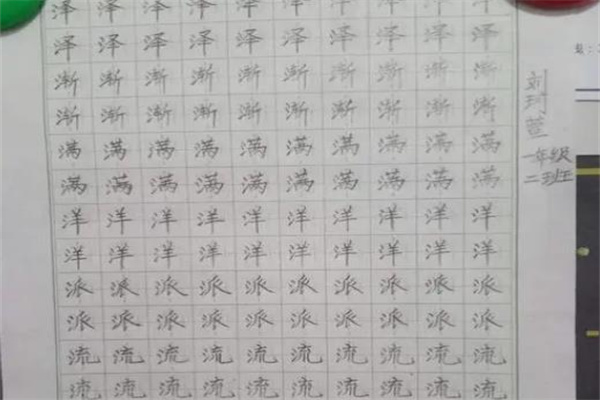 泽泽泽泽泽泽泽泽泽泽
泽泽泽泽泽泽泽泽泽泽
渐渐渐渐渐渐渐渐渐渐
渐渐渐渐渐渐渐渐渐渐
满满满满满满满满满满
满满满满满满满满满满
洋洋洋洋洋洋洋洋洋洋
洋洋洋洋洋洋洋洋洋洋
派派派派派派派派派派
派派派派派派派派派派
流流流流流流流流流流
流流流流流流流流流流
刘珂萱
一年级
二班